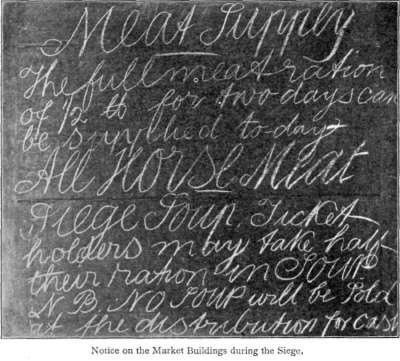 Meat Supply
The full meat ration
of ½ lb for two days can
be supplied to-day
All Horse Meat
Siege Soup. Ticket
holders may take half
their ration in SOUP
N.B. NO SOUP will be Sold
at the distribution for cash
Notice on the Market Buildings during the Siege.